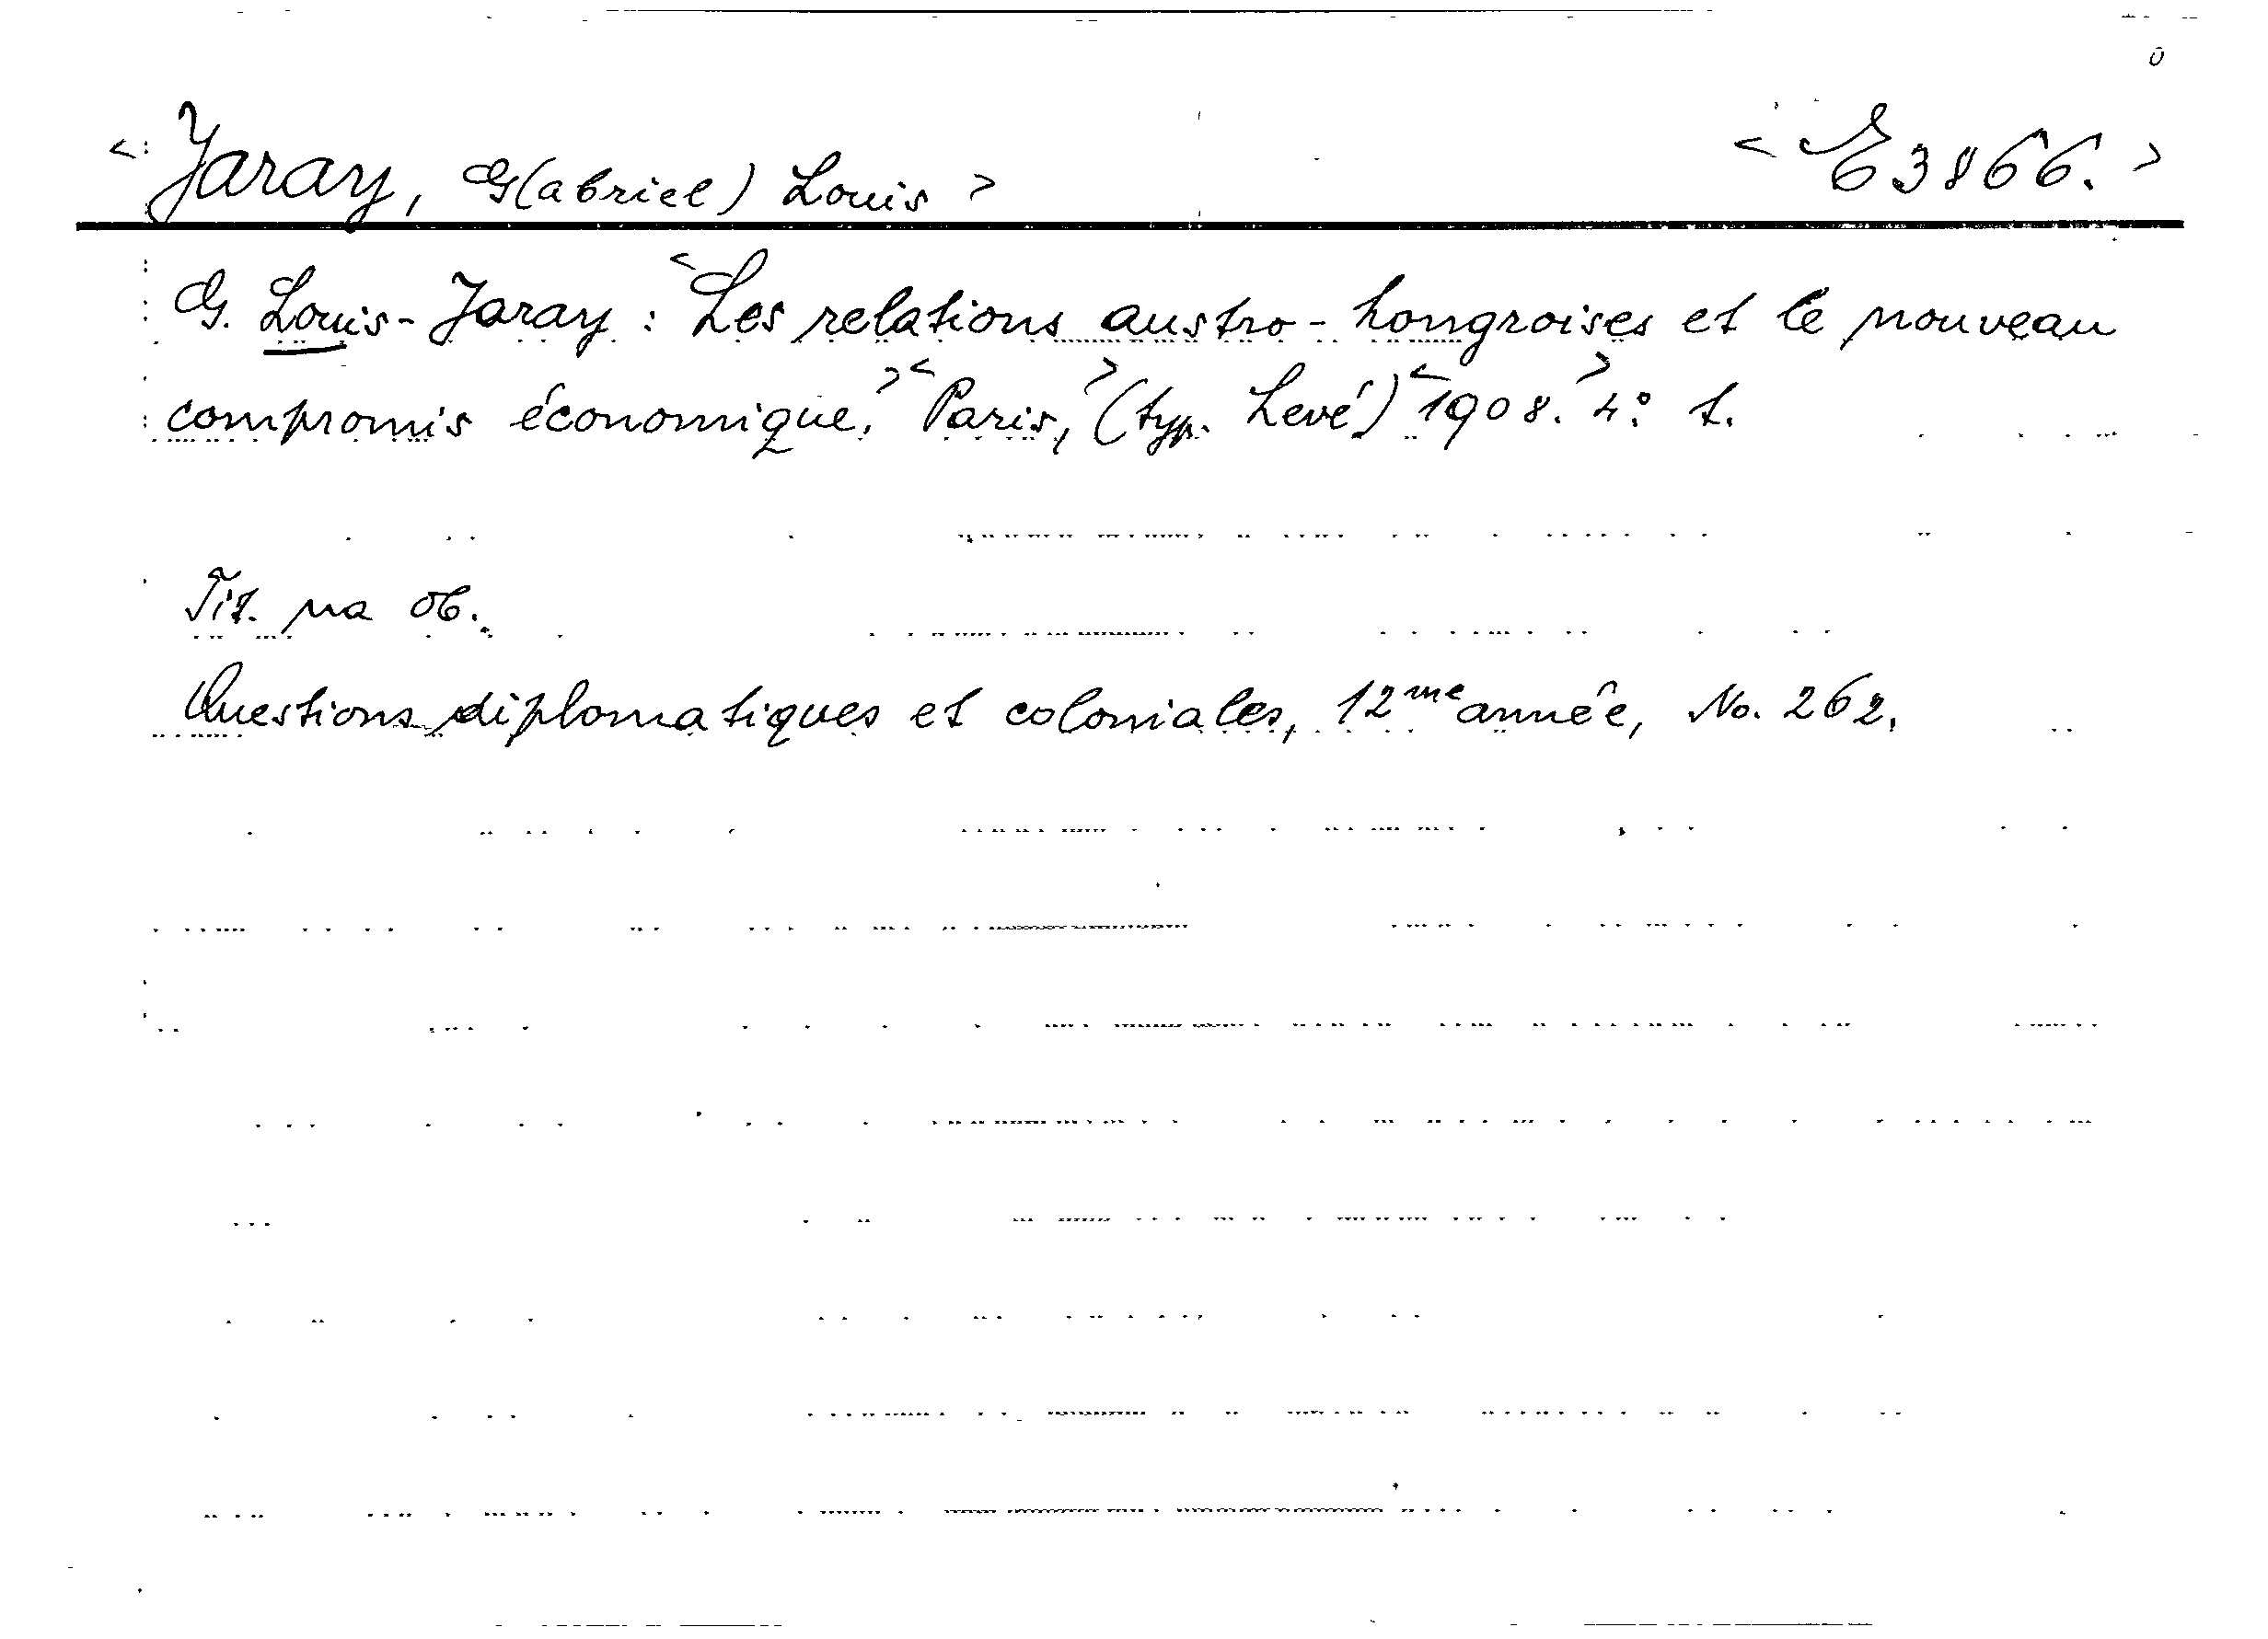 <Jaray, G(abriel) Louis> <E3866.>
G. Louis-Jaray: <Les relations austro-hongroises et le nouveau
compromis économique.> <Paris,> (typ. Levé) <1908.> 4.° t.
Tit. na ob.
Questions diplomatiques et coloniales, 12me année, No. 262.